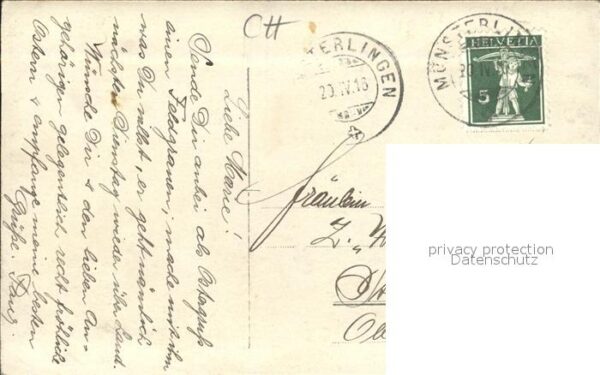 CH
Liebe Marie!
Sende Dir anbei als Ostergruss
einen Feldgrauen, mache mit ihm
was Du willst, er geht nämlich
nächsten Dienstag wieder über Land.
Wünsche Dir & den lieben An-
gehörigen gelegentlich recht fröhliche
Ostern & empfange meine besten
Grüsse.
TERLINGEN
20.IV.16
MÜNSTERLIN
20.IV.
HELVETIA
5
Fräulein
Z.
privacy protection
Datenschutz